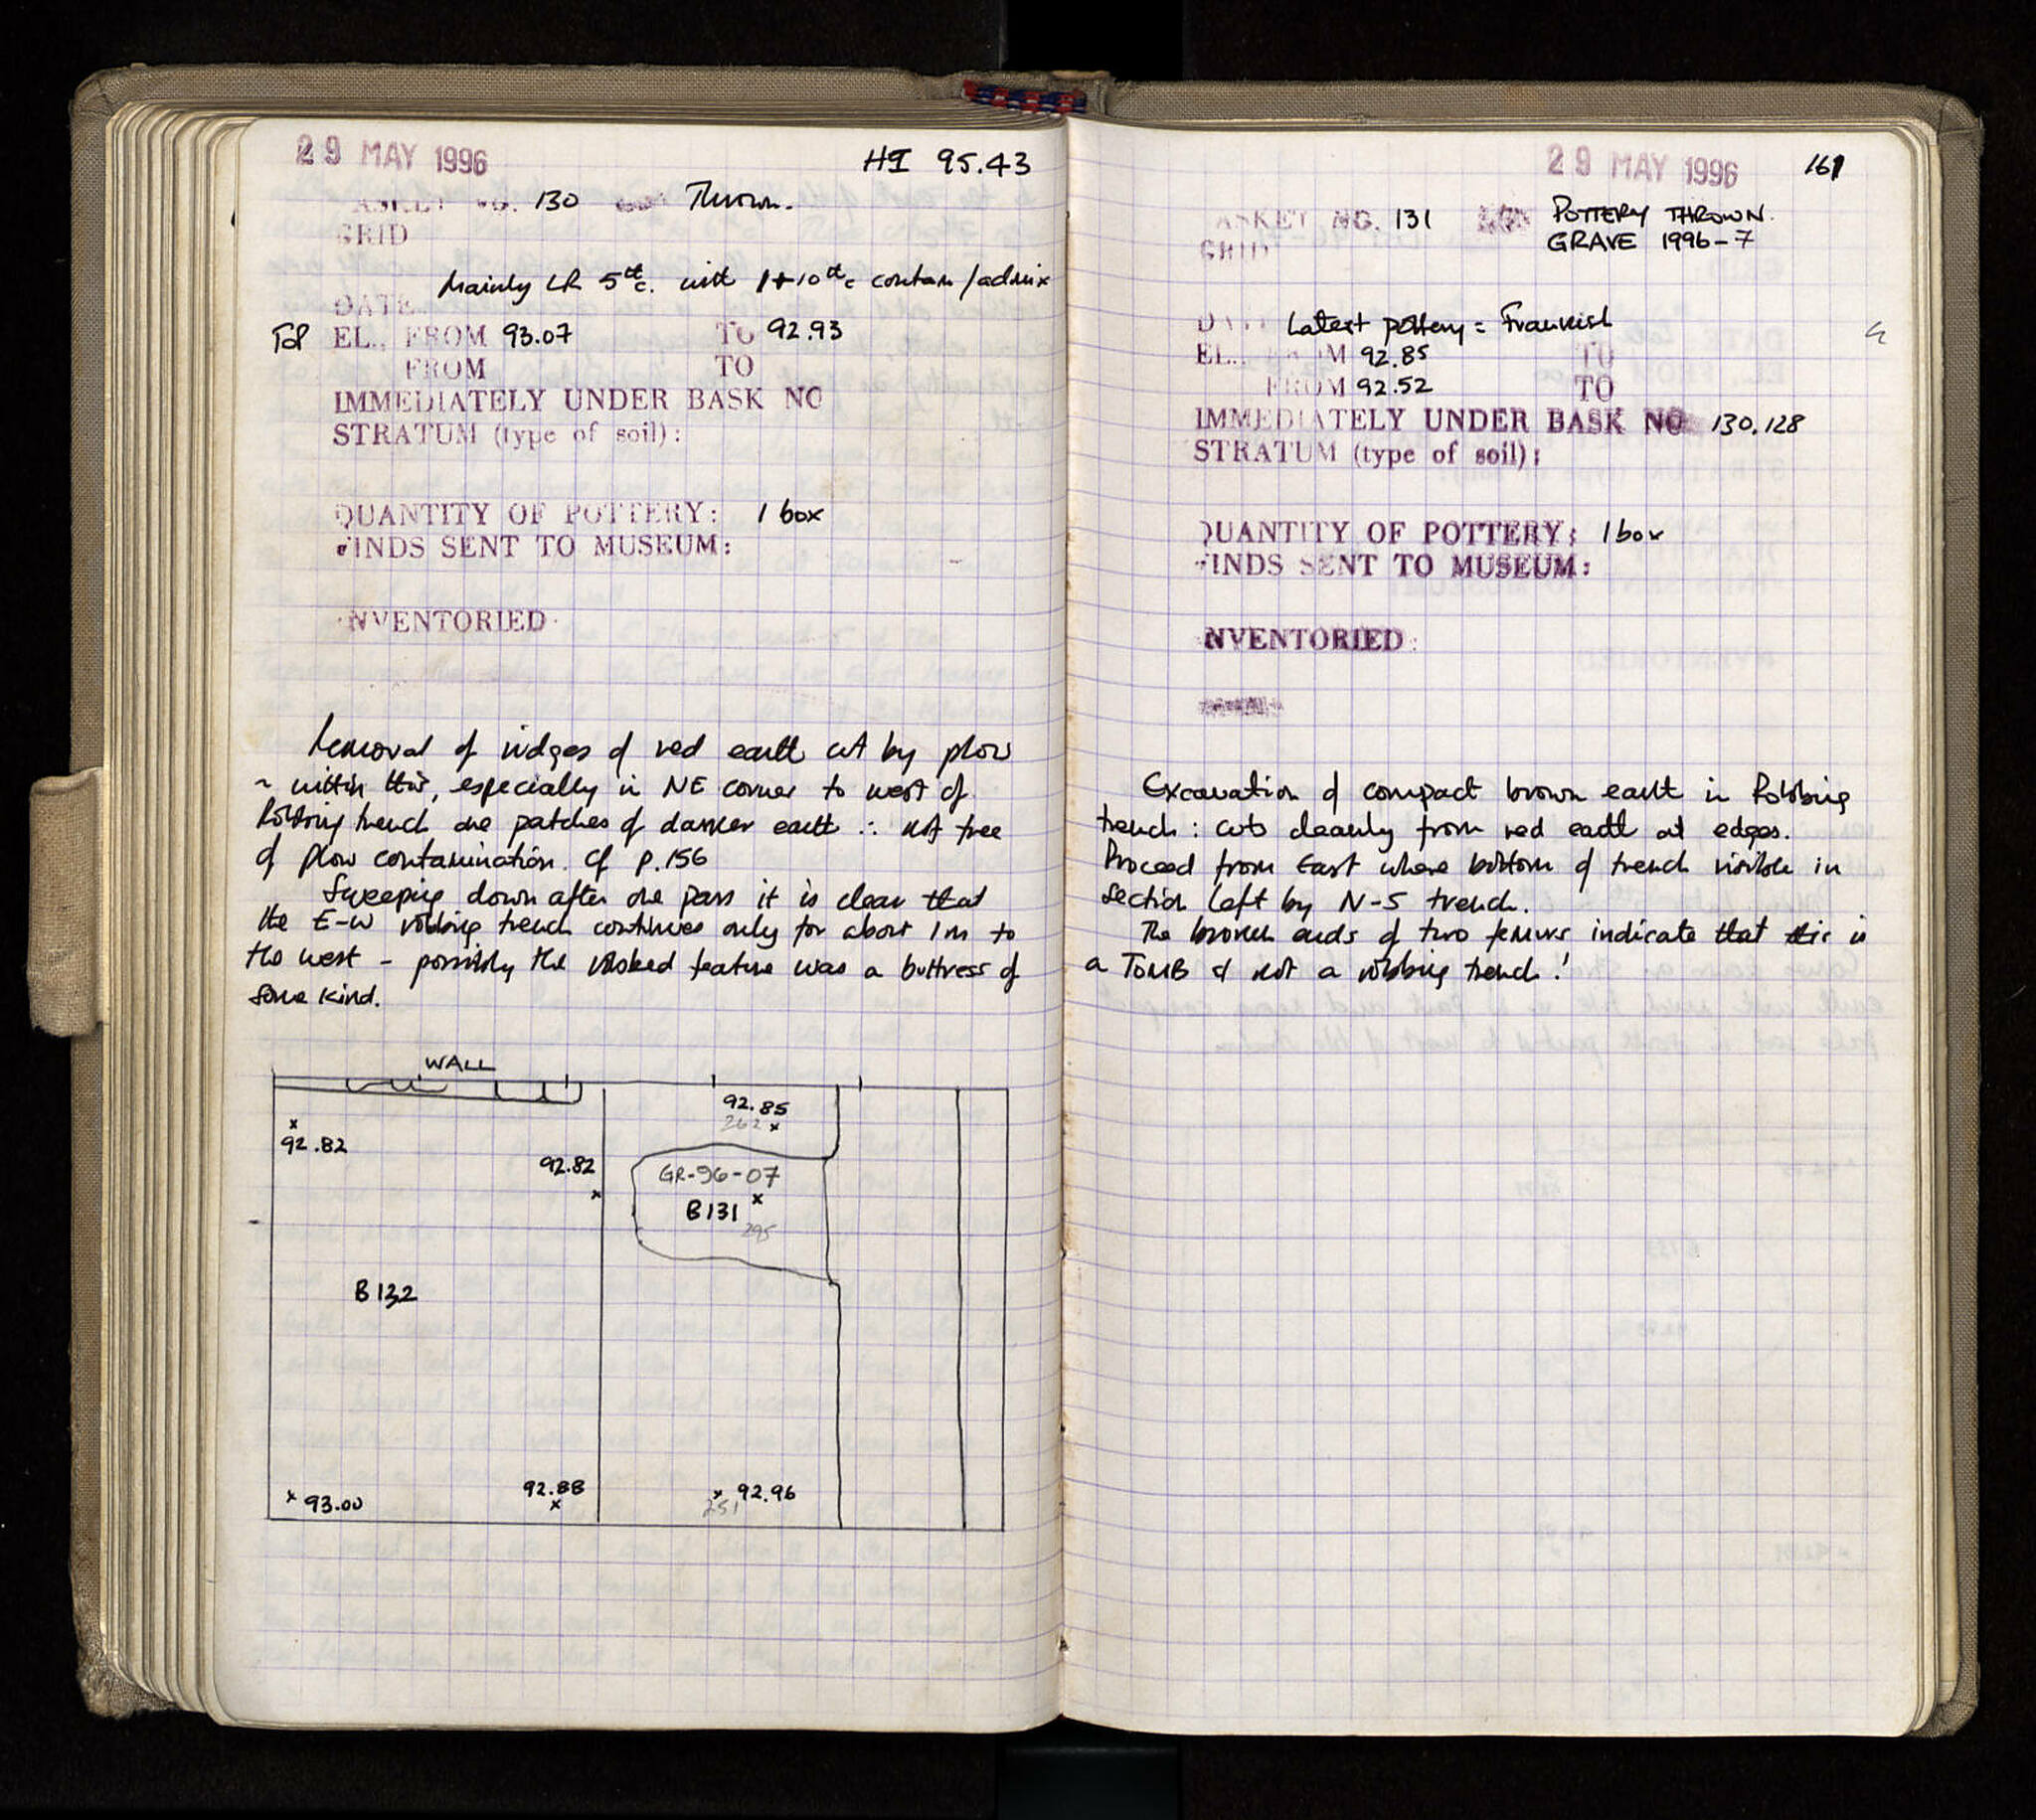 29 MAY 1996
HI 95.43
ASKET NO. 130 Thrown.
GRID
Mainly LR 5th c. with 1 + 10th c contam/admix
DATE
Top EL., FROM 93.07 TO 92.93
FROM TO
IMMEDIATELY UNDER BASK NO
STRATUM (type of soil):
QUANTITY OF POTTERY: 1 box
FINDS SENT TO MUSEUM:
NVENTORIED
Removal of ridges of red earth cut by plow
~ within this, especially in NE corner to west of
Robbing trench are patches of darker earth ∴ not free
of plow contamination. Cf p. 156
Sweeping down after one pass it is clear that
the E-W robbing trench continues only for about 1m to
the west - possibly the robbed feature was a buttress of
some kind.
WALL
92.85
262
92.82
92.82
GR-96-07
B131
295
B132
93.00
92.88
92.96
251
29 MAY 1996
161
ASKET NO. 131 POTTERY THROWN.
GRID GRAVE 1996-7
DAT Latest pottery = Frankish
EL., OM 92.85 TO
FROM 92.52 TO
IMMEDIATELY UNDER BASK NO 130, 128
STRATUM (type of soil):
QUANTITY OF POTTERY: 1 box
FINDS SENT TO MUSEUM:
NVENTORIED:
Excavation of compact brown earth in Robbing
trench: cuts cleanly from red earth at edges.
Proceed from East where bottom of trench visible in
section left by N-S trench.
The broken ends of two femurs indicate that this is
a TOMB & not a robbing trench!